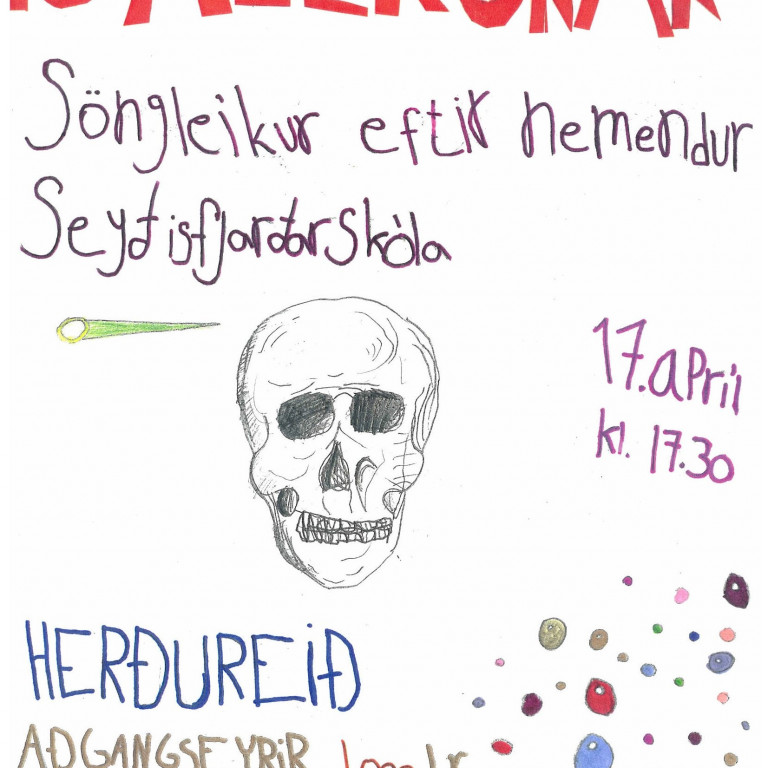 Söngleikur eftir nemendur
Seyðisfjarðarskóla
17. apríl
kl. 17.30
HERÐUREIÐ
AÐGANGSEYRIR